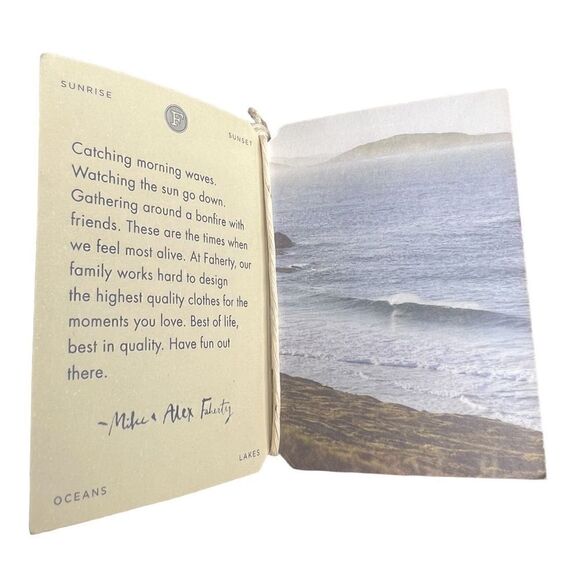 SUNRISE
F
SUNSET
Catching morning waves.
Watching the sun go down.
Gathering around a bonfire with
friends. These are the times when
we feel most alive. At Faherty, our
family works hard to design
the highest quality clothes for the
moments you love. Best of life,
best in quality. Have fun out
there.
-Mike & Alex Faherty
LAKES
OCEANS